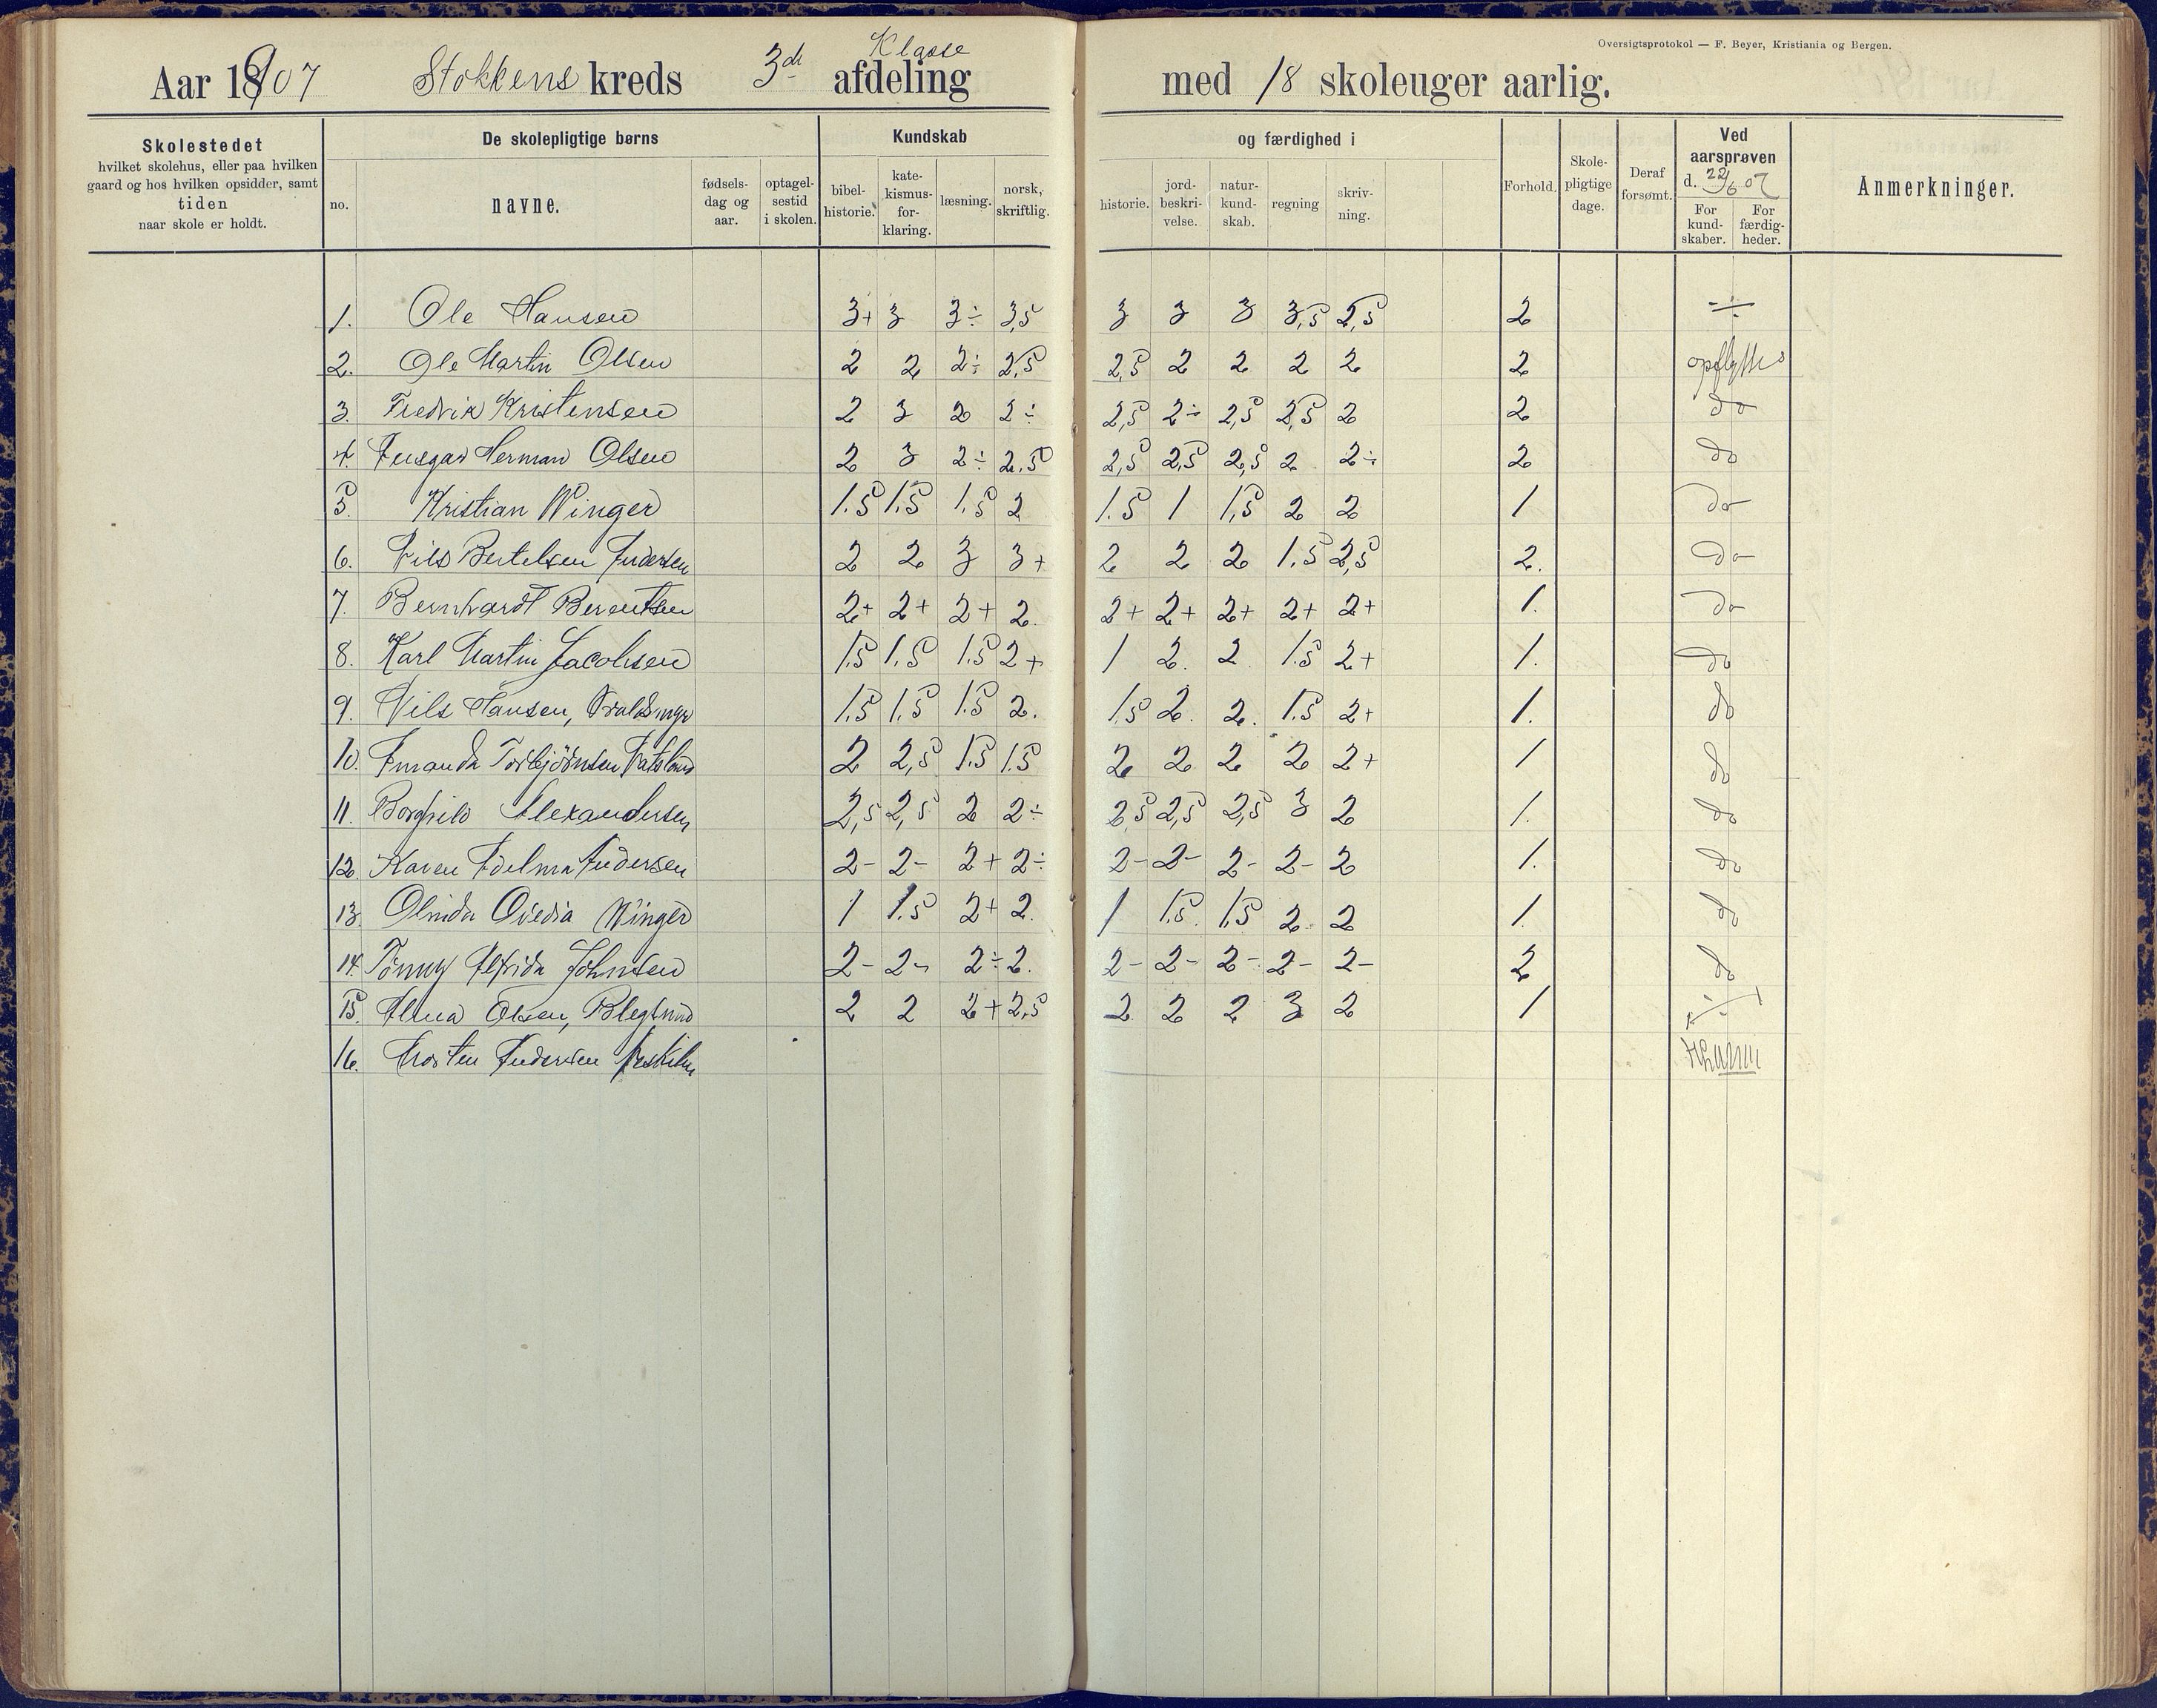 Oversigtsprotokol — F. Beyer, Kristiania og Bergen.
Aar 1907 Stokkens kreds 3di Klasse afdeling med 18 skoleuger aarlig.
Skolestedet
hvilket skolehus, eller paa hvilken
gaard og hos hvilken opsidder, samt
tiden
naar skole er holdt.
De skolepligtige børns
no.
navne.
fødsels-
dag og
aar.
optagel-
sestid
i skolen.
Kundskab
bibel-
historie.
kate-
kismus-
for-
klaring.
læsning.
norsk,
skriftlig.
og færdighed i
historie.
jord-
beskri-
velse.
natur-
kund-
skab.
regning
skriv-
ning.
Forhold.
Skole-
pligtige
dage.
Deraf
forsømt.
Ved
aarsprøven
d. 22/6 07
For
kund-
skaber.
For
færdig-
heder.
Anmerkninger.
1. Ole Hansen 3+ 3 3÷ 3,5 3 3 3 3,5 2,5 2 ÷
2. Ole Martin Olsen 2 2 2÷ 2,5 2,5 2 2 2 2 2 opflyttes
3. Fredrik Kristensen 2 3 2 2÷ 2,5 2÷ 2,5 2,5 2 2 do
4. Ansgar Herman Olsen 2 3 2÷ 2.5 2,5 2,5 2,5 2 2÷ 2 do
5. Kristian Winger 1.5 1.5 1.5 2 1.5 1 1,5 2 2 1 do
6. Nils Bertelsen Andersen 2 2 3 3+ 2 2 2 1.5 2,5 2. do
7. Bernhardt Berentsen 2+ 2+ 2+ 2. 2+ 2+ 2+ 2+ 2+ 1. do
8. Karl Martin Jacobsen 1.5 1.5 1.5 2+ 1 2. 2 1.5 2+ 1. do
9. Nils Hansen, 1.5 1.5 1.5 2. 1.5 2. 2. 1.5 2+ 1. do
10. Amanda Torbjörnsen 2 2,5 1.5 1.5 2 2 2 2 2+ 1 do
11. Borghild Alexandersen 2,5 2,5 2 2÷ 2,5 2,5 2,5 3 2 1. do
12. Karen Adelma Andersen 2- 2- 2+ 2÷ 2- 2- 2- 2- 2 1. do
13. Olinda Ovedia Winger 1 1.5 2+ 2. 1 1.5. 1.5 2 2 1. do
14. Tönny Alfrida Johnsen 2- 2- 2÷ 2. 2- 2- 2- 2- 2- 2 do
15. Alma Olsen, 2 2 2+ 2,5 2 2 2 3 2 1 ÷
16. Morten Andersen